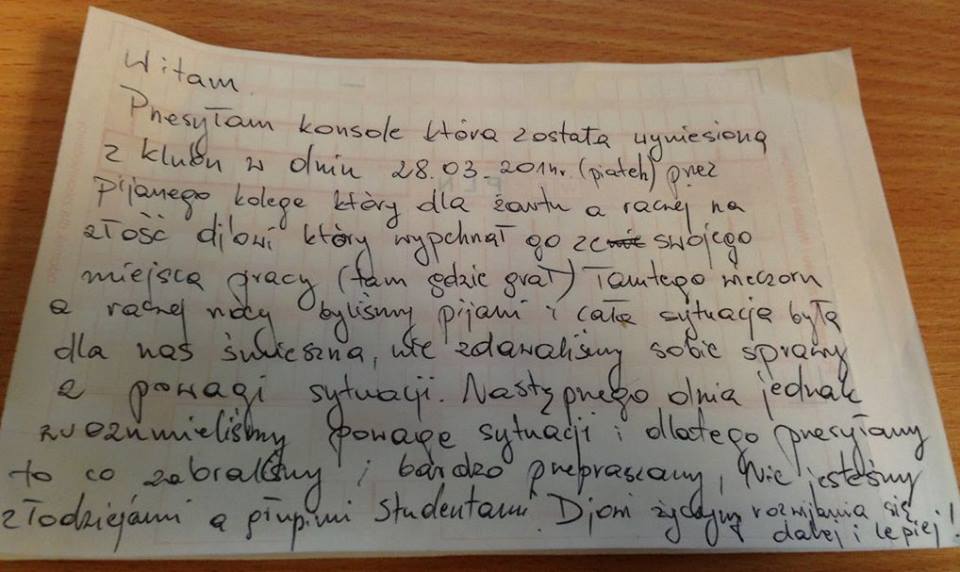 Witam
Przesyłam konsole która została wyniesiona
z klubu w dniu 28.03.2014r. (piątek) przez
pijanego kolegę który dla żartu a raczej na
złość djowi który wypchnął go ze swojego
miejsca pracy (tam gdzie grał) Tamtego wieczoru
a raczej nocy byliśmy pijani i cała sytuacja była
dla nas śmieszna, nie zdawaliśmy sobie sprawy
z powagi sytuacji. Następnego dnia jednak
zrozumieliśmy powagę sytuacji i dlatego przesyłamy
to co zabraliśmy i bardzo przepraszamy, Nie jesteśmy
złodziejami a głupimi studentami. Djom życzymy rozwijania się
dalej i lepiej!